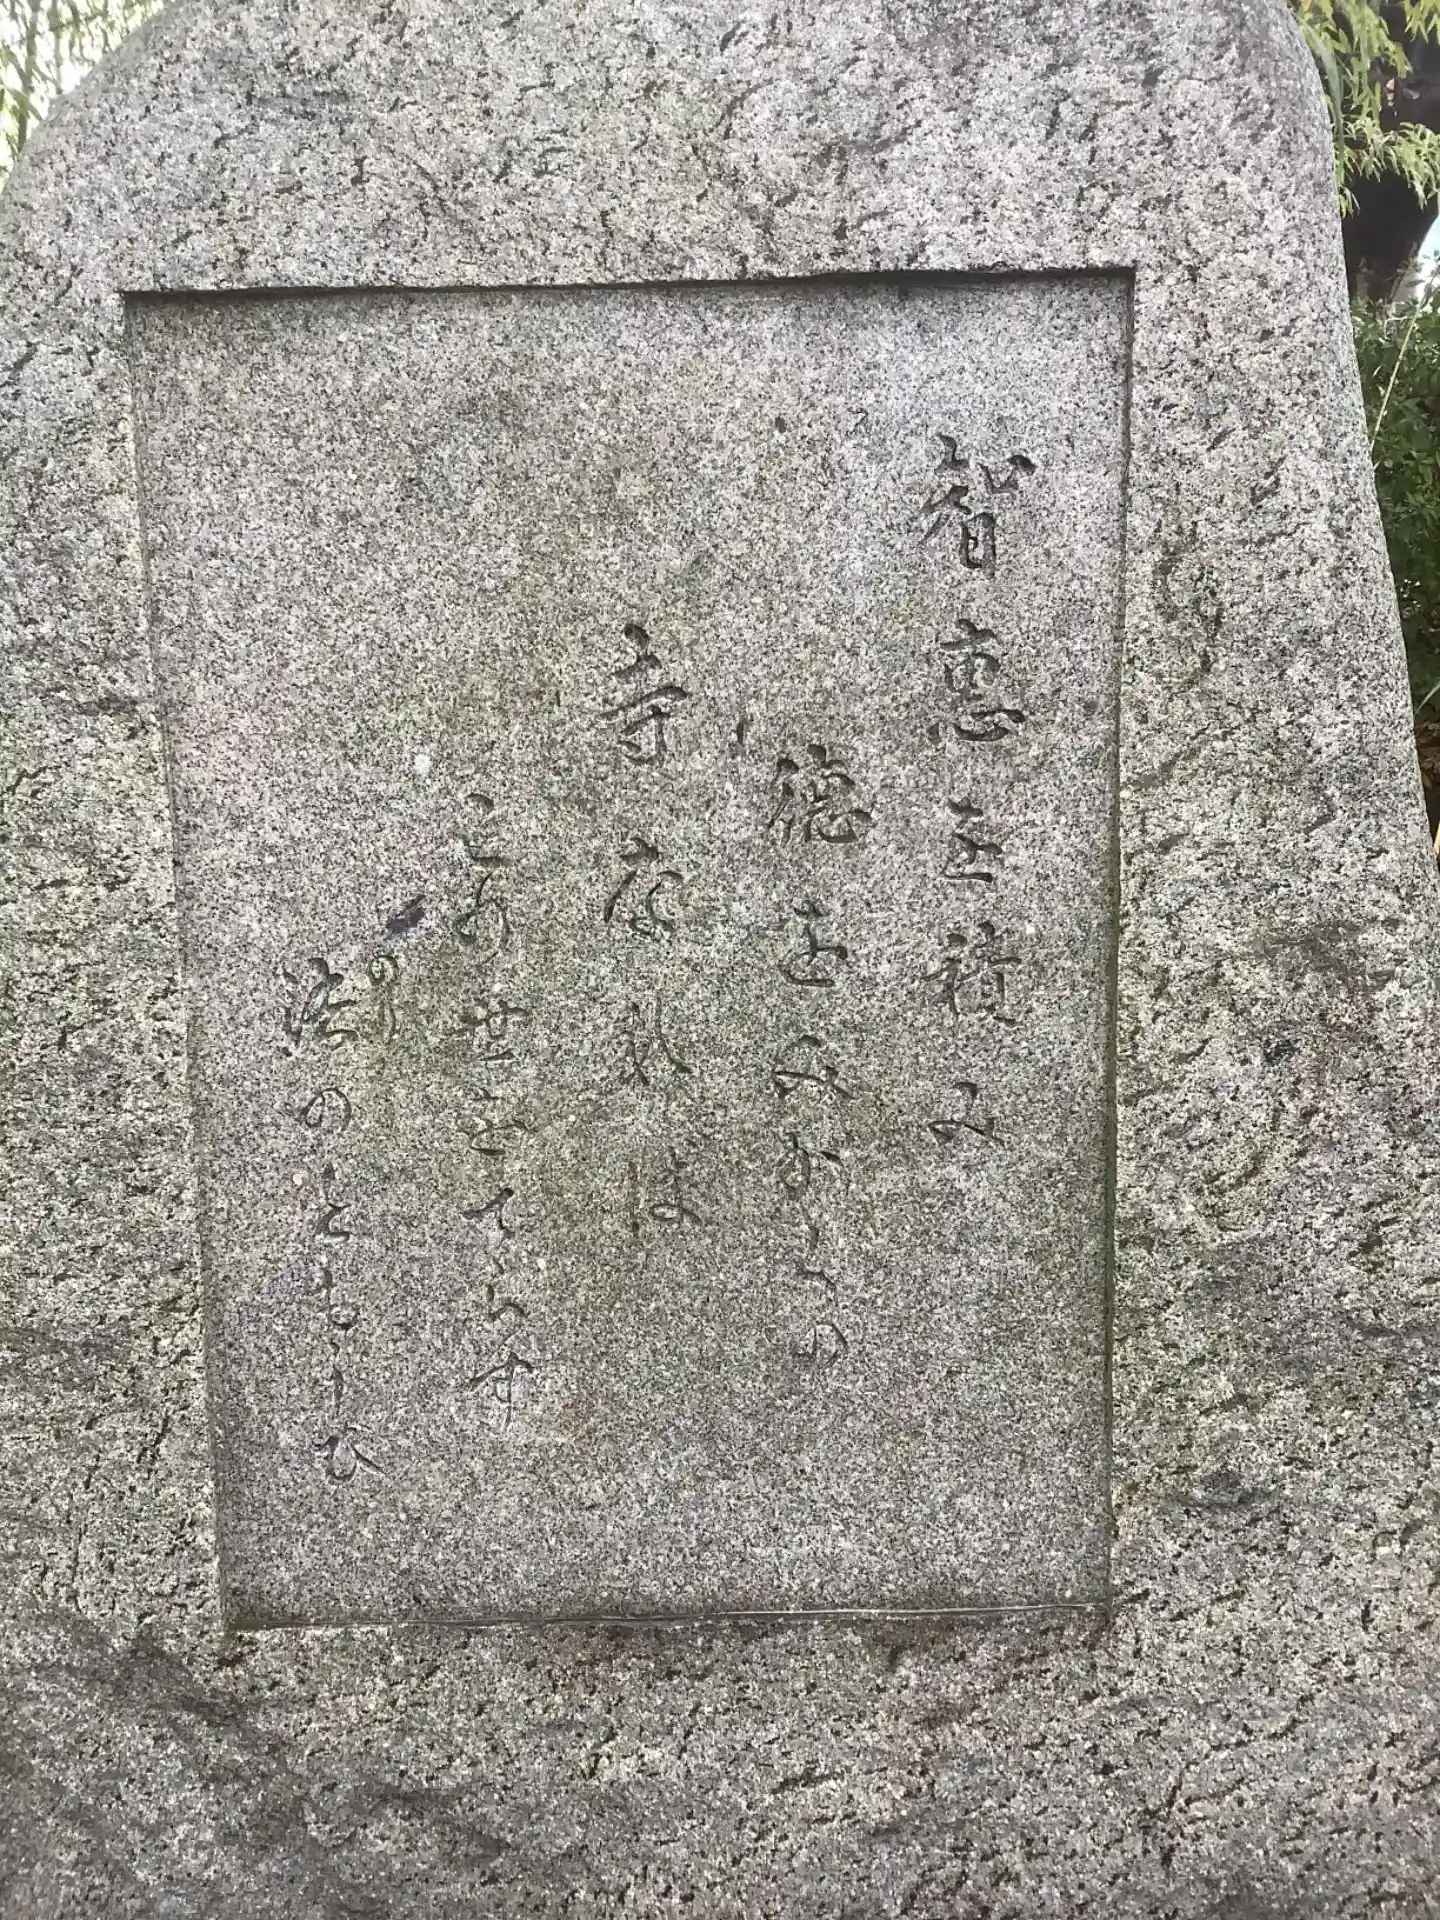 智恵を積み
徳をみかくの
寺なれは
世をてらす
法のともしひ
のり